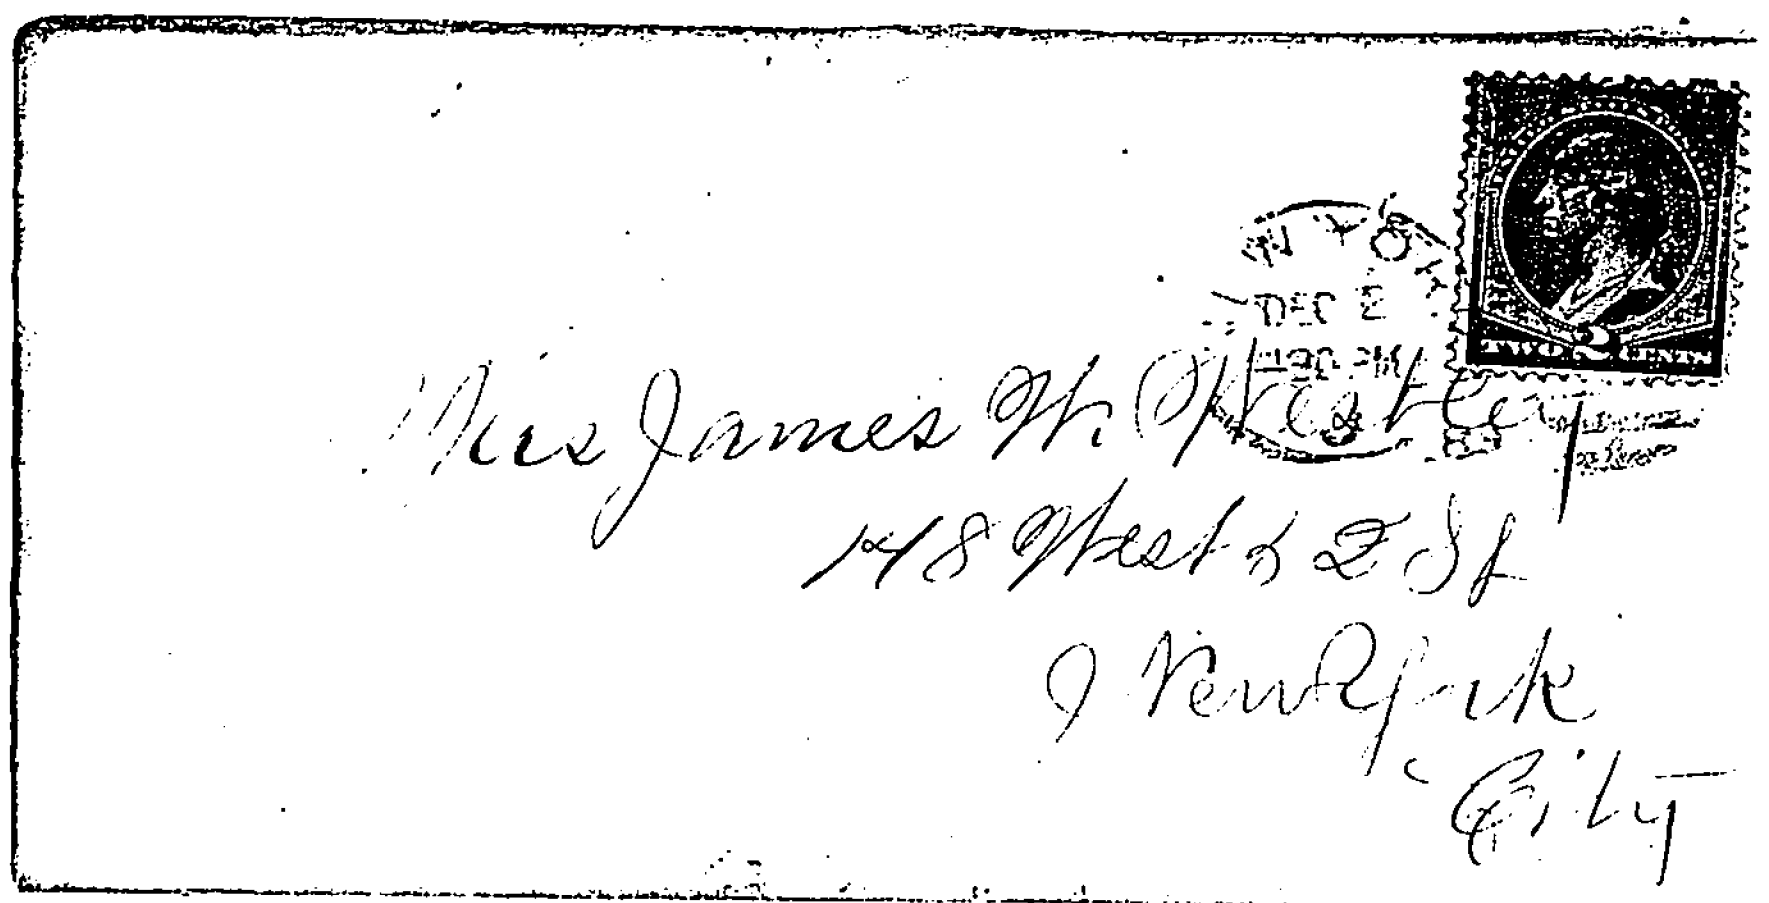 N. YORK
DEC 2
PM
TWO 2 CENTS
Mrs James W.
148 West 52 St
New York
City